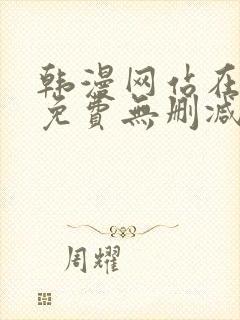 韩漫网站在
免費無删减
周耀